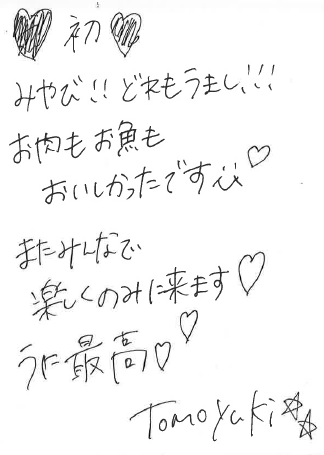 ♥ 初 ♥
みやび!! どれもうまし!!!
お肉もお魚も
おいしかったです♡
またみんなで
楽しくのみに来ます♡
うに最高♡♡
Tomoyuki☆☆